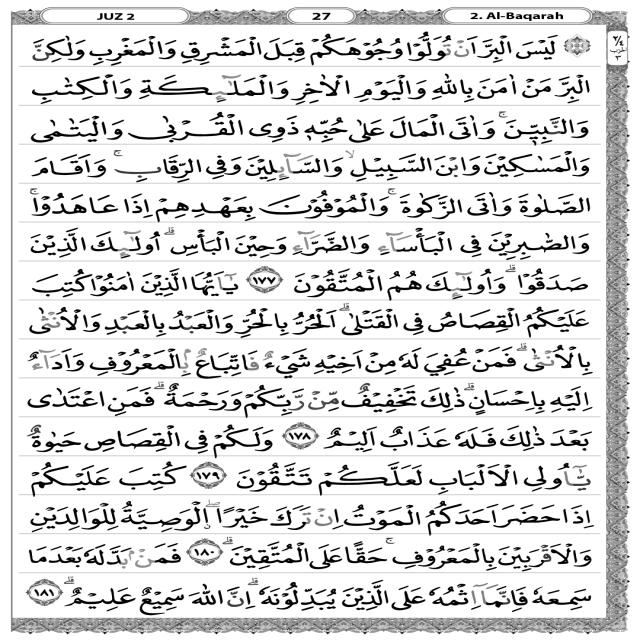 JUZ 2 27 2. Al-Baqarah
لَيْسَ الْبِرَّ اَنْ تُوَلُّوْا وُجُوْهَكُمْ قِبَلَ الْمَشْرِقِ وَالْمَغْرِبِ وَلٰكِنَّ
الْبِرَّ مَنْ اٰمَنَ بِاللّٰهِ وَالْيَوْمِ الْاٰخِرِ وَالْمَلٰۤىِٕكَةِ وَالْكِتٰبِ
وَالنَّبِيّٖنَ ۚ وَاٰتَى الْمَالَ عَلٰى حُبِّهٖ ذَوِى الْقُرْبٰى وَالْيَتٰمٰى
وَالْمَسٰكِيْنَ وَابْنَ السَّبِيْلِۙ وَالسَّاۤىِٕلِيْنَ وَفِى الرِّقَابِۚ وَاَقَامَ
الصَّلٰوةَ وَاٰتَى الزَّكٰوةَ ۚ وَالْمُوْفُوْنَ بِعَهْدِهِمْ اِذَا عَاهَدُوْا ۚ
وَالصّٰبِرِيْنَ فِى الْبَأْسَاۤءِ وَالضَّرَّاۤءِ وَحِيْنَ الْبَأْسِۗ اُولٰۤىِٕكَ الَّذِيْنَ
صَدَقُوْا ۗ وَاُولٰۤىِٕكَ هُمُ الْمُتَّقُوْنَ ١٧٧ يٰٓاَيُّهَا الَّذِيْنَ اٰمَنُوْا كُتِبَ
عَلَيْكُمُ الْقِصَاصُ فِى الْقَتْلٰىۗ اَلْحُرُّ بِالْحُرِّ وَالْعَبْدُ بِالْعَبْدِ وَالْاُنْثٰى
بِالْاُنْثٰىۗ فَمَنْ عُفِيَ لَهٗ مِنْ اَخِيْهِ شَيْءٌ فَاتِّبَاعٌۢ بِالْمَعْرُوْفِ وَاَدَاۤءٌ
اِلَيْهِ بِاِحْسَانٍۗ ذٰلِكَ تَخْفِيْفٌ مِّنْ رَّبِّكُمْ وَرَحْمَةٌۗ فَمَنِ اعْتَدٰى
بَعْدَ ذٰلِكَ فَلَهٗ عَذَابٌ اَلِيْمٌ ١٧٨ وَلَكُمْ فِى الْقِصَاصِ حَيٰوةٌ
يّٰٓاُولِى الْاَلْبَابِ لَعَلَّكُمْ تَتَّقُوْنَ ١٧٩ كُتِبَ عَلَيْكُمْ
اِذَا حَضَرَ اَحَدَكُمُ الْمَوْتُ اِنْ تَرَكَ خَيْرًا ۖ ۨالْوَصِيَّةُ لِلْوَالِدَيْنِ
وَالْاَقْرَبِيْنَ بِالْمَعْرُوْفِۚ حَقًّا عَلَى الْمُتَّقِيْنَۗ ١٨٠ فَمَنْۢ بَدَّلَهٗ بَعْدَمَا
سَمِعَهٗ فَاِنَّمَآ اِثْمُهٗ عَلَى الَّذِيْنَ يُبَدِّلُوْنَهٗۗ اِنَّ اللّٰهَ سَمِيْعٌ عَلِيْمٌۗ ١٨١